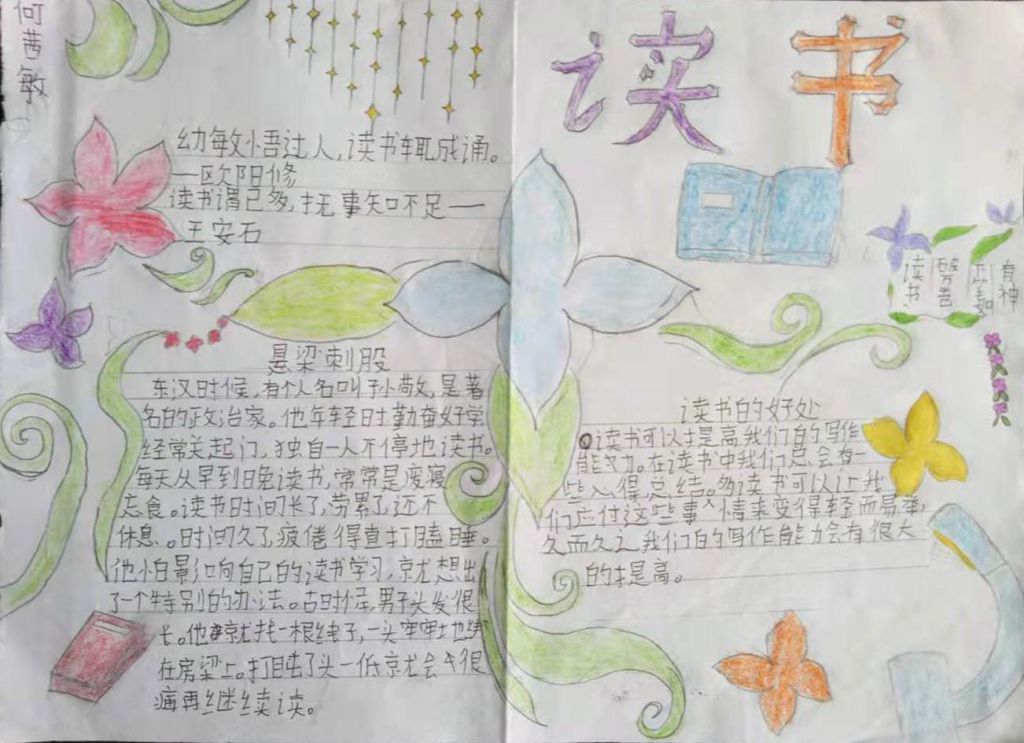 何茜敏
幼敏悟过人,读书辄成诵。
—欧阳修
读书谓已多,抚事知不足——
王安石
悬梁刺股
东汉时候,有个人名叫孙敬,是著
名的政治家。他年轻时勤奋好学
经常关起门,独自一人不停地读书。
每天从早到晚读书,常常是废寝
忘食。读书时间长了,劳累了还不
休息。时间久了,疲倦得直打瞌睡。
他怕影响自己的读书学习,就想出
了一个特别的办法。古时候,男子头发很
长。他就找一根绳子,一头牢牢地绑
在房梁上。打盹了头一低就会
痛再继续读。
读书
读书
破万卷
下笔如
有神
读书的好处
读书可以提高我们的写作
能力。在读书中我们总会有一
些心得总结。多读书可以让我
们应付这些事情来变得轻而易举,
久而久之我们的写作能力会有很大
的提高。